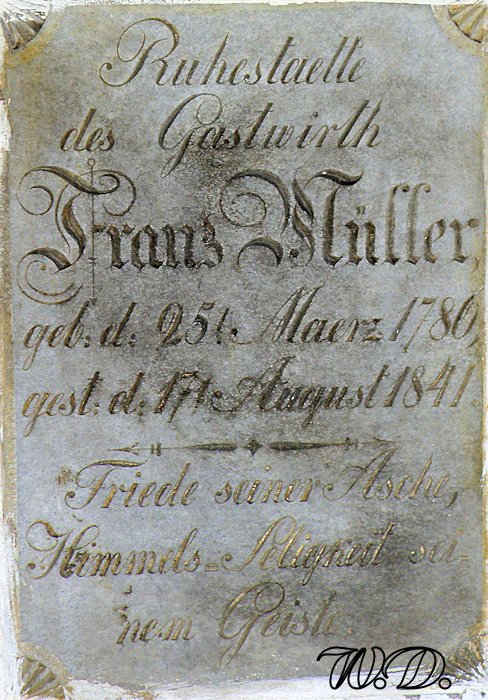 Ruhestaette
des Gastwirth
Franz Müller,
geb: d: 25t. Maerz 1786,
gest: d: 17t August 1841.
Friede seiner Asche,
Himmels-Seligkeit sei-
nem Geiste.
W.D.